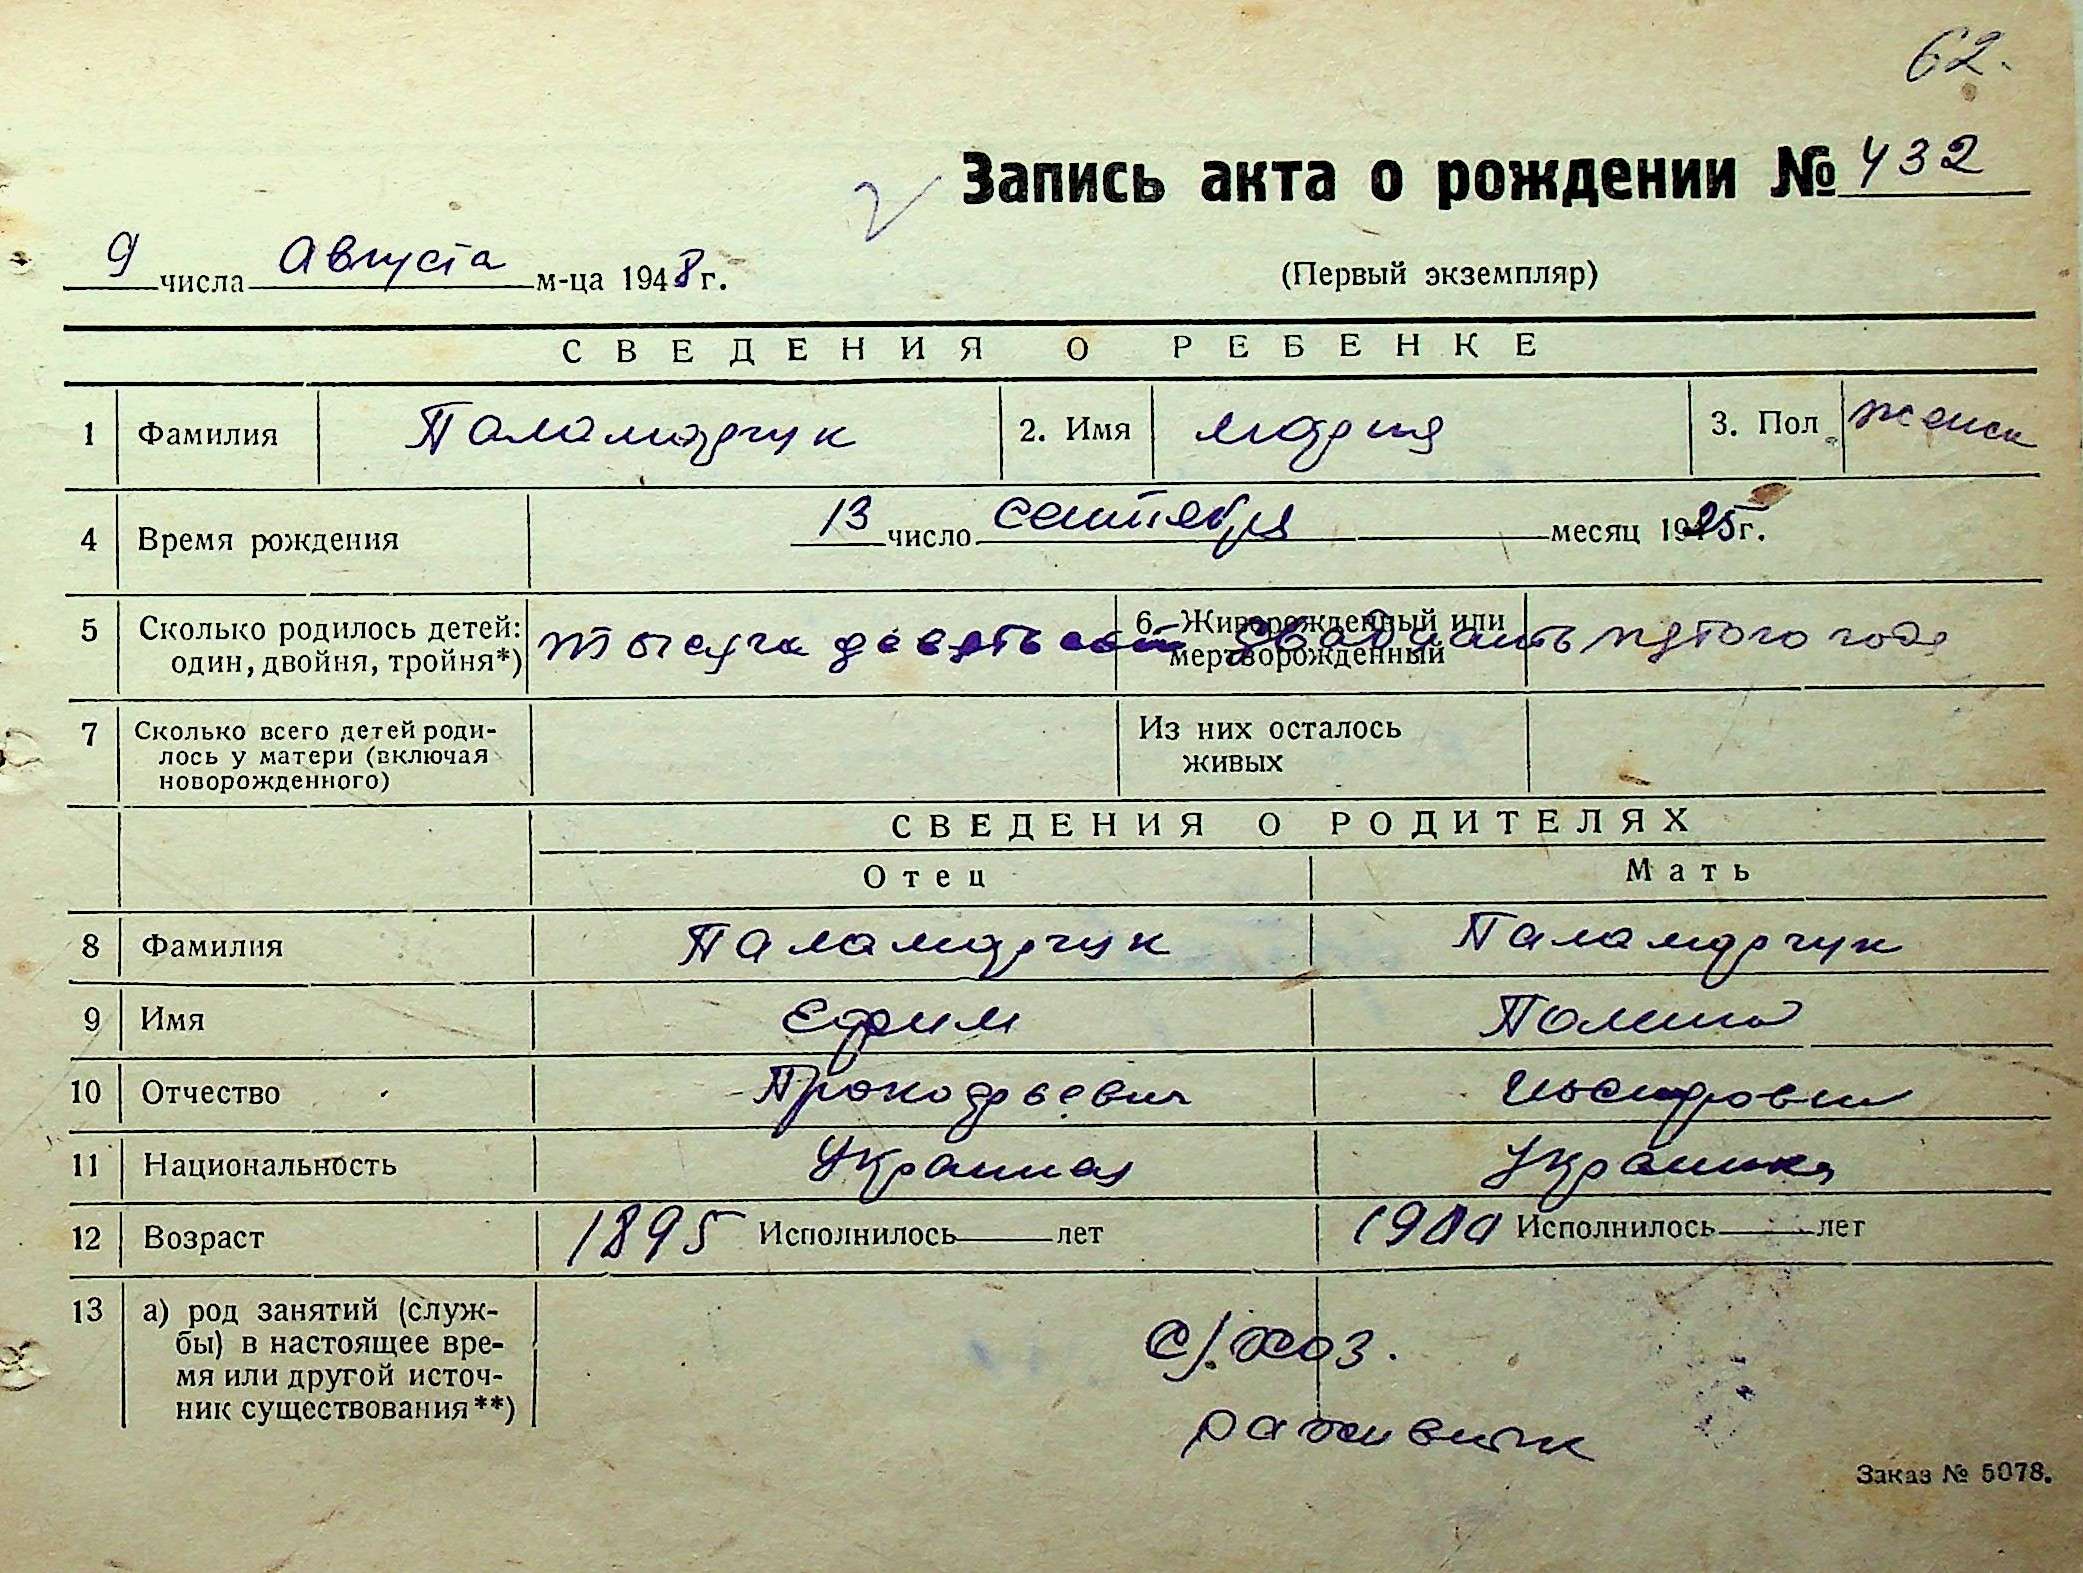 62.
Запись акта о рождении № 432
9 числа Августа м-ца 1948 г.
(Первый экземпляр)
СВЕДЕНИЯ О РЕБЕНКЕ
1 Фамилия Паламарчук 2. Имя Мария 3. Пол женск
4 Время рождения 13 число сентября месяц 1925 г.
5 Сколько родилось детей: один, двойня, тройня*) 6. Живорожденный или мертворожденный
тысяча девятьсот двадцать пятого года
7 Сколько всего детей роди-
лось у матери (включая
новорожденного)
Из них осталось
живых
СВЕДЕНИЯ О РОДИТЕЛЯХ
Отец Мать
8 Фамилия Паламарчук Паламарчук
9 Имя Ефим Полина
10 Отчество Прокофьевич
11 Национальность Украинка
12 Возраст 1895 Исполнилось лет 1900 Исполнилось лет
13 а) род занятий (служ-
бы) в настоящее вре-
мя или другой источ-
ник существования**)
с/хоз.
Заказ № 5078.